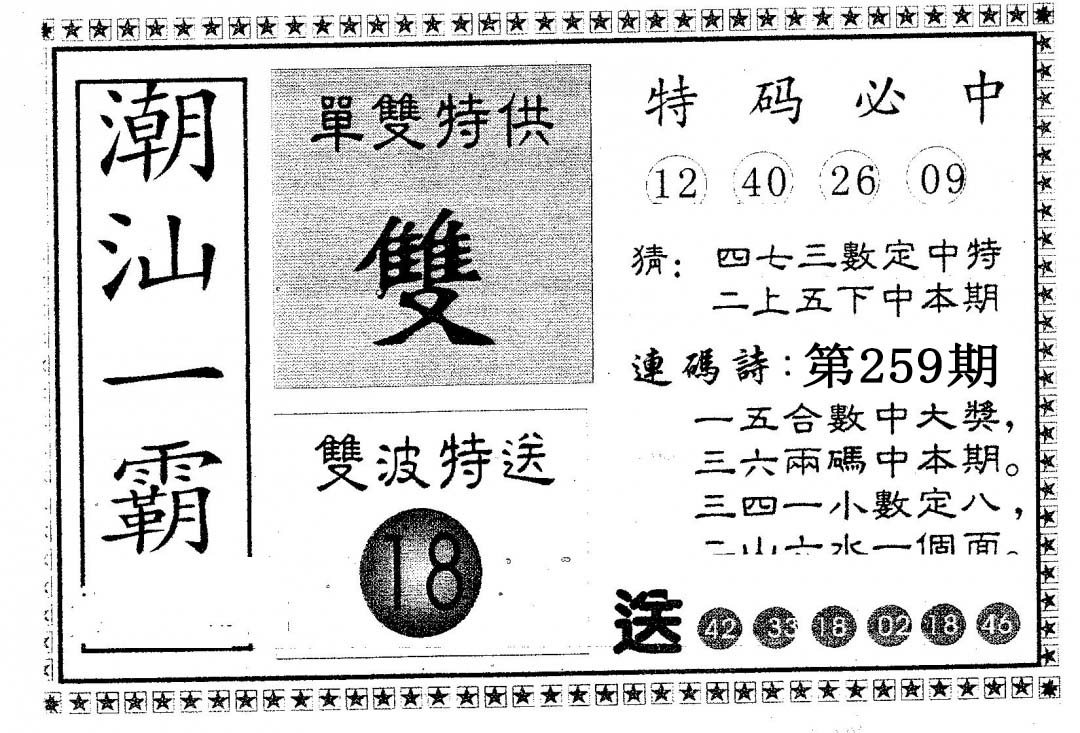 潮汕一霸
單雙特供
雙
雙波特送
18
特码必中
12 40 26 09
猜: 四七三數定中特
二上五下中本期
連碼詩:第259期
一五合數中大獎,
三六兩碼中本期。
三四一小數定八,
二山六水一個面。
送 42 33 18 02 18 46